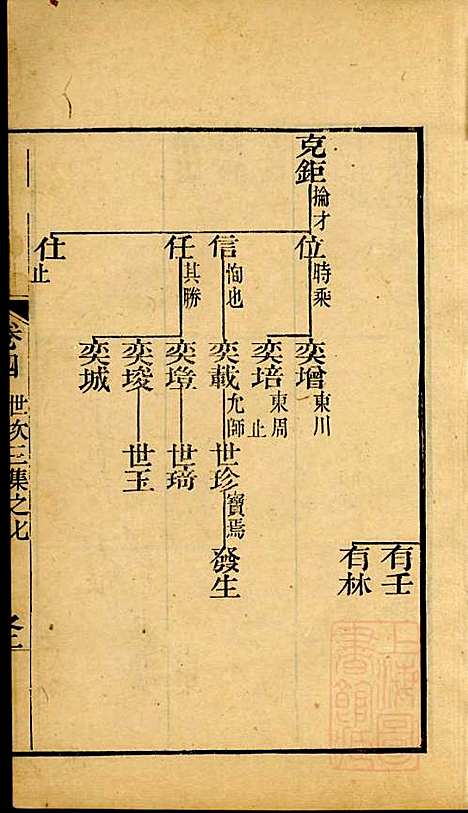 有壬
有林
克鉅 掄才
位 時乘
奕增 東川
奕培 東周 止
信 恂也
奕載 尤師
世珍 寶焉
發生
任 其勝
奕璒
世琦
奕埈
世玉
奕城
仕 止
卷四 世次三集之七
上海圖書館藏